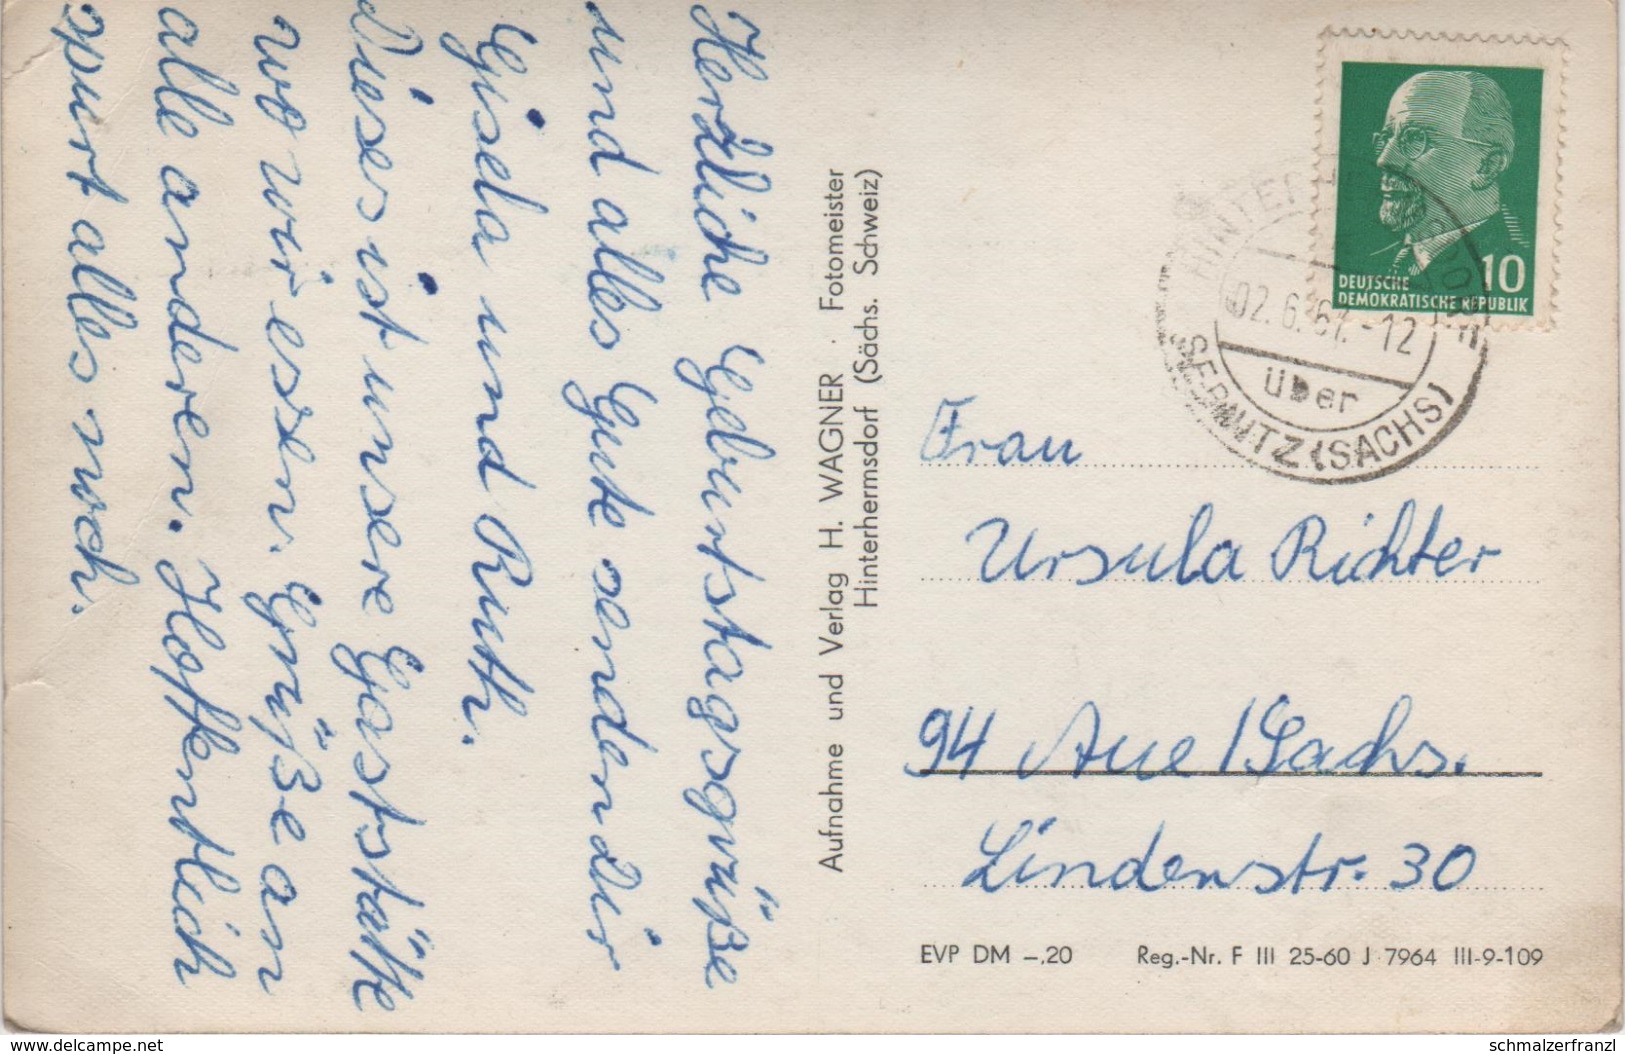 Herzliche Geburtstagsgrüße
und alles Gute senden Dir
Gisela und Ruth.
Dieses ist unsere Gaststätte
wo wir essen. Grüße an
alle anderen. Hoffentlich
spurt alles noch.
Aufnahme und Verlag H. WAGNER · Fotomeister
Hinterhermsdorf (Sächs. Schweiz)
DEUTSCHE
DEMOKRATISCHE REPUBLIK
10
02.6. -12
über
SEBNITZ (SACHS)
Frau
Ursula Richter
94 Aue / Sachs.
Lindenstr. 30
EVP DM –,20 Reg.-Nr. F III 25-60 J 7964 III-9-109
www.delcampe.net
schmalzerfranzl